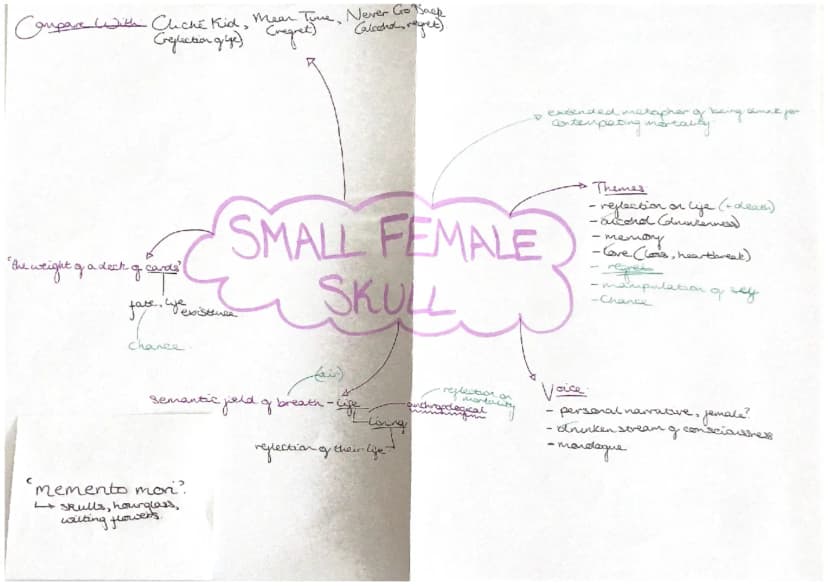 Compare With Cliché Kid, Mean Time, Never Go Back
(reflection of life) (regret) (alcohol, regret)
extended metaphor of being drunk for
contempating mortality
SMALL FEMALE
SKULL
Themes
- reflection on life (+death)
- alcohol (drunkenness)
- memory
- love (loss, heartbreak)
- regret
- manipulation of self
- Chance
'the weight of a deck of cards'
fate, life
existence
chance
(air)
semantic field of breath - life
living
reflection on
mortality
reflection of their life
Voice
- personal narrative, female?
- drunken stream of consciousness
- monologue
'memento mori'
↳ skulls, hourglass,
wilting flowers.